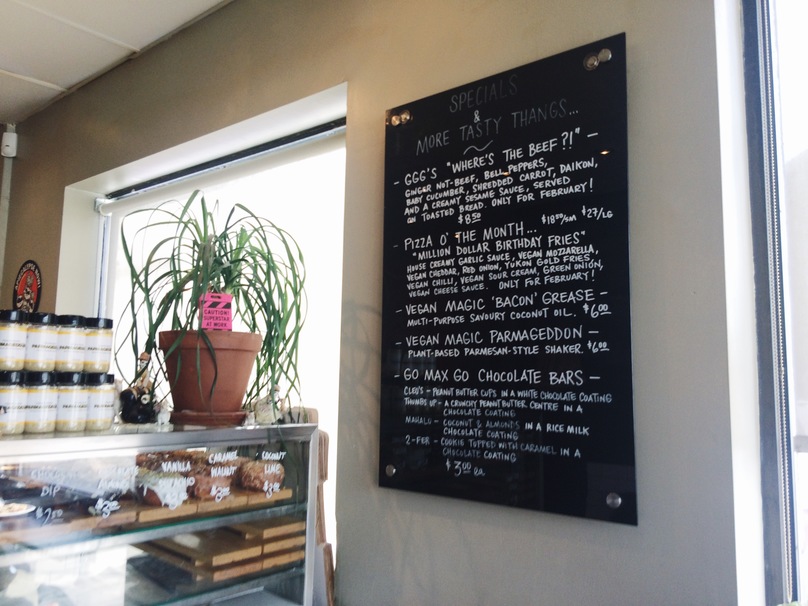 SPECIALS
&
MORE TASTY THANGS...
- GGG'S "WHERE'S THE BEEF?!" -
GINGER NOT-BEEF, BELL PEPPERS,
BABY CUCUMBER, SHREDDED CARROT, DAIKON,
AND A CREAMY SESAME SAUCE, SERVED
ON TOASTED BREAD. ONLY FOR FEBRUARY!
$8.50
$18.00/SM $27/LG
- PIZZA O' THE MONTH...
"MILLION DOLLAR BIRTHDAY FRIES"
HOUSE CREAMY GARLIC SAUCE, VEGAN MOZZARELLA,
VEGAN CHEDDAR, RED ONION, YUKON GOLD FRIES,
VEGAN CHILI, VEGAN SOUR CREAM, GREEN ONION,
VEGAN CHEESE SAUCE. ONLY FOR FEBRUARY!
- VEGAN MAGIC 'BACON' GREASE -
MULTI-PURPOSE SAVOURY COCONUT OIL. $6.00
- VEGAN MAGIC PARMAGEDDON -
PLANT-BASED PARMESAN-STYLE SHAKER. $6.00
- GO MAX GO CHOCOLATE BARS -
CLEO'S - PEANUT BUTTER CUPS IN A WHITE CHOCOLATE COATING
THUMBS UP - A CRUNCHY PEANUT BUTTER CENTRE IN A
CHOCOLATE COATING
MAHALO - COCONUT & ALMONDS IN A RICE MILK
CHOCOLATE COATING
2-FER - COOKIE TOPPED WITH CARAMEL IN A
CHOCOLATE COATING
$3.00 ea
CAUTION!
SUPERSTAR
AT WORK
DIP
$2.50
VANILLA
CARAMEL
WALNUT
COCONUT
LIME